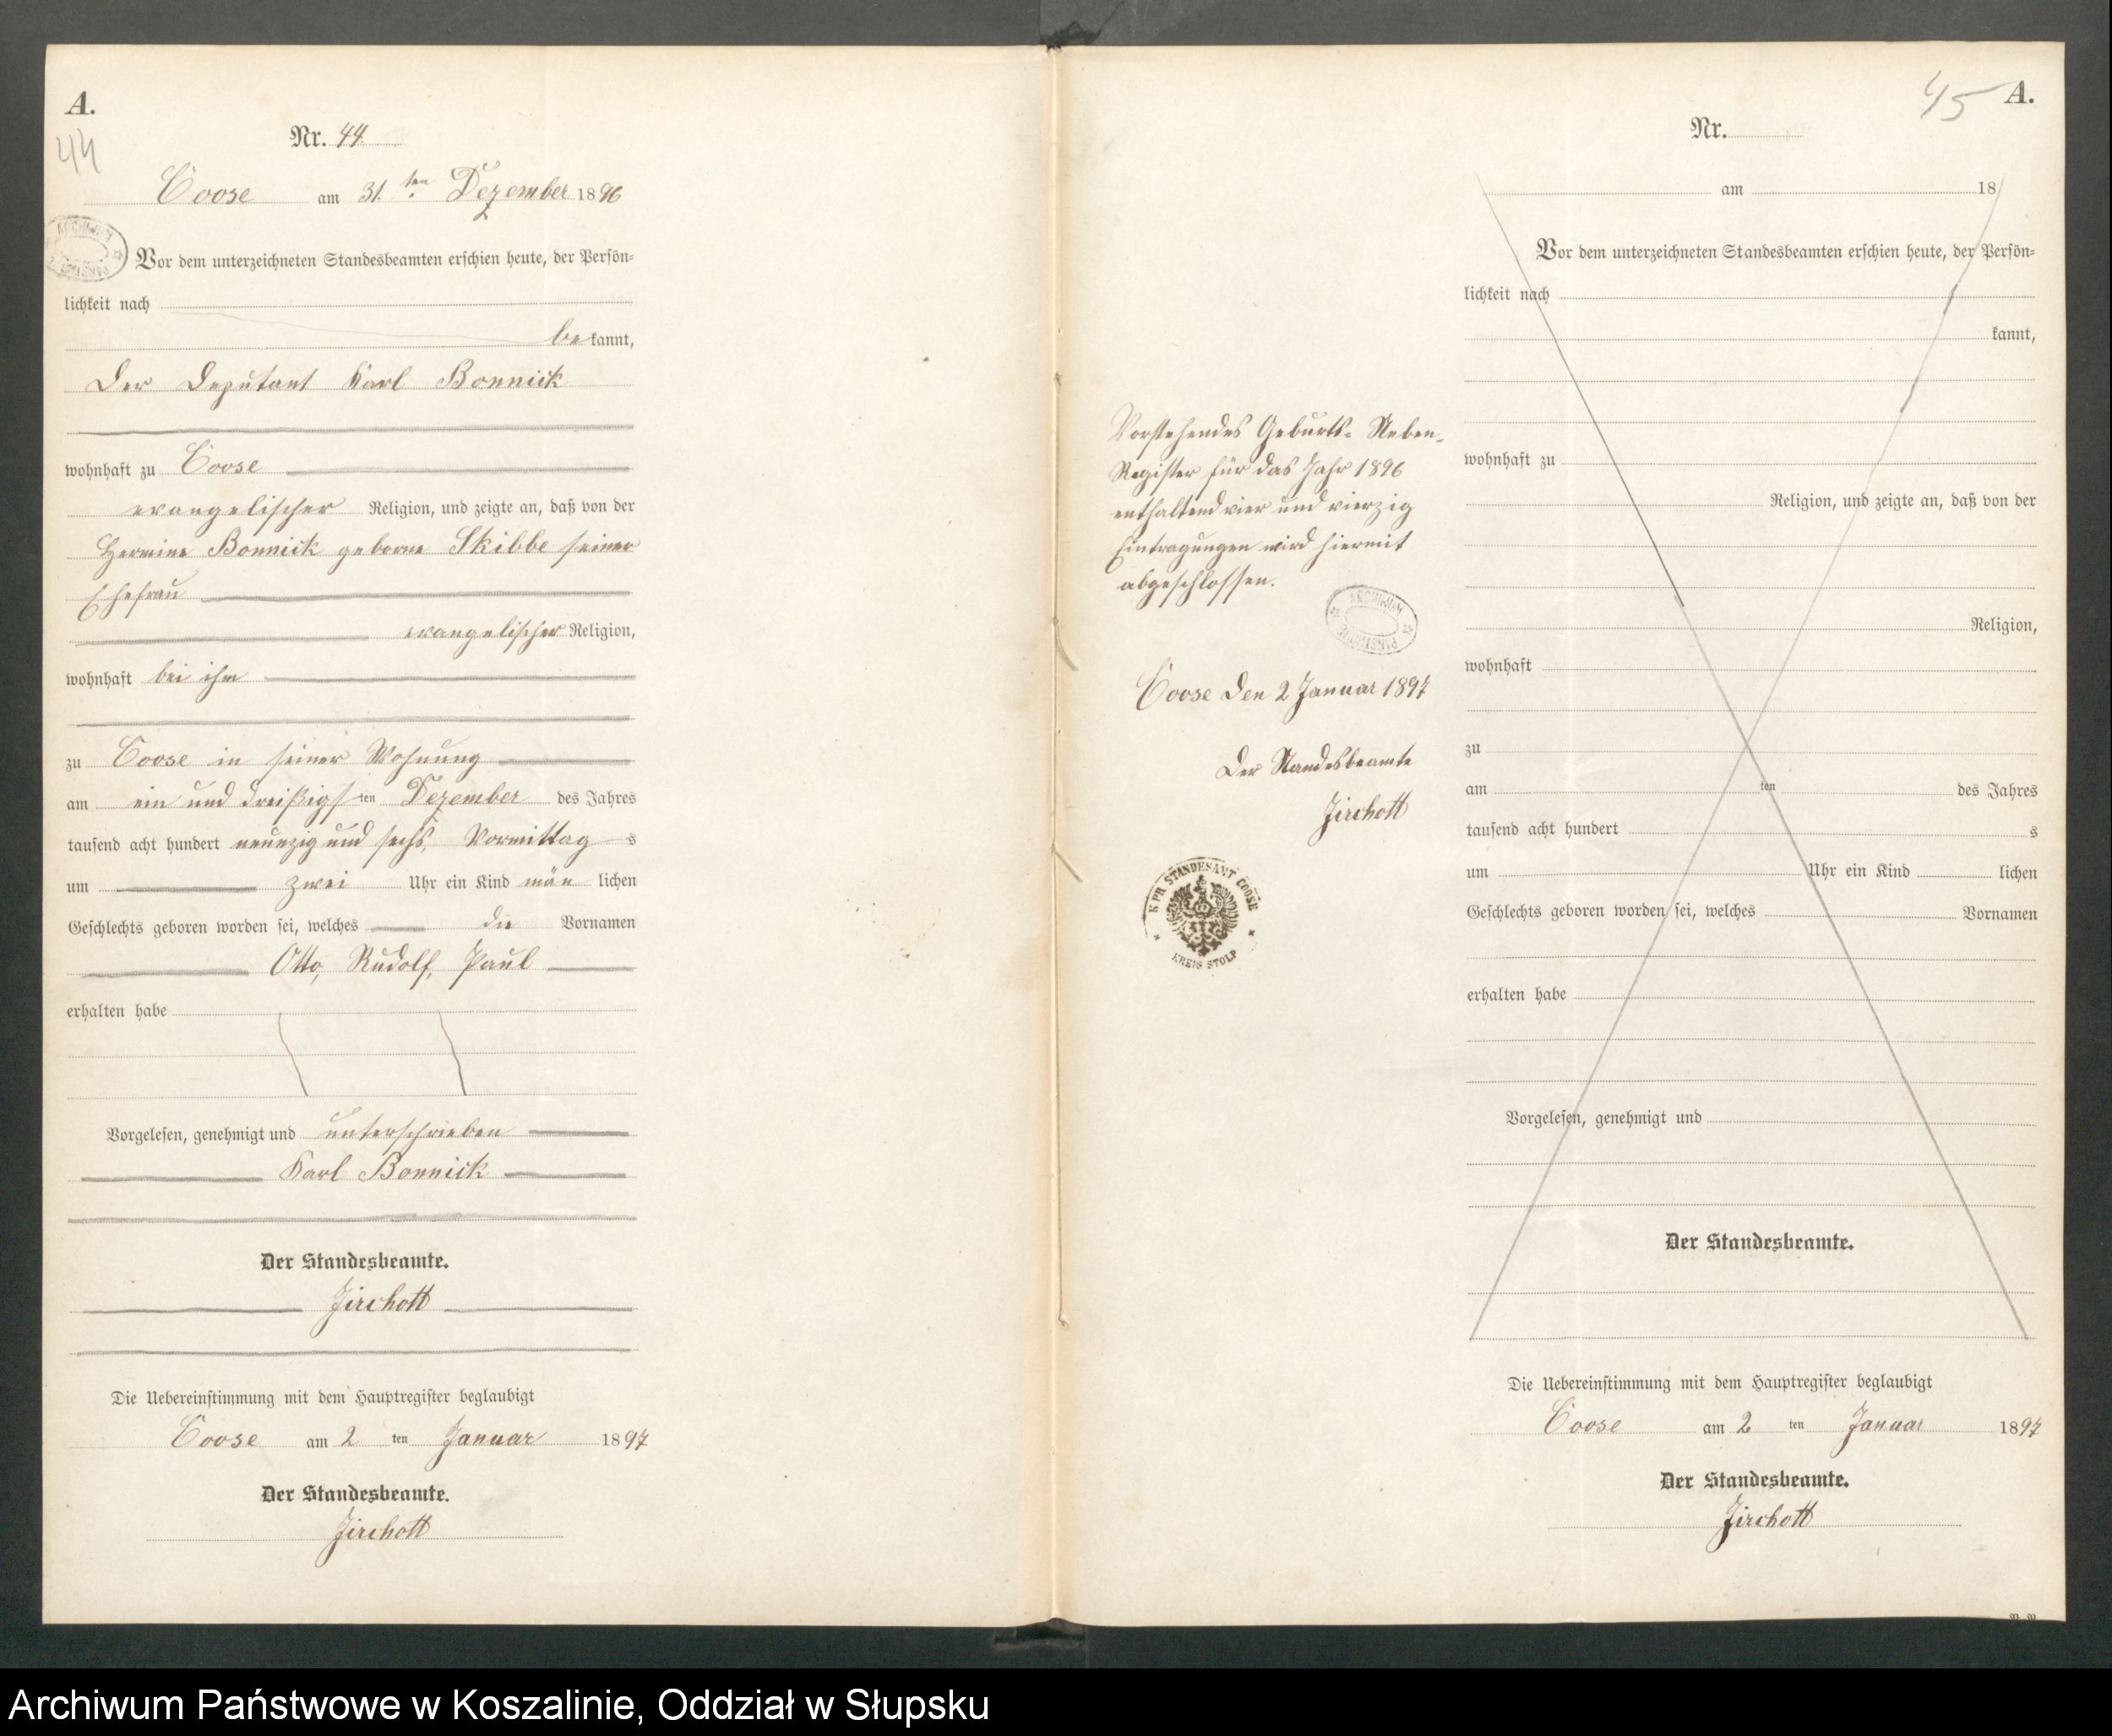 A.
44
Nr. 44.
Coose am 31.ten Dezember 1896
Vor dem unterzeichneten Standesbeamten erschien heute, der Persön-
lichkeit nach
bekannt,
der Deputant Karl Bonnick
wohnhaft zu Coose
evangelischer Religion, und zeigte an, daß von der
Hermine Bonnick geborne Skibbe seiner
Ehefrau
evangelischer Religion,
wohnhaft bei ihm
zu Coose in seiner Wohnung
am ein und dreißigsten Dezember des Jahres
tausend acht hundert neunzig und sechs, Vormittags
um zwei Uhr ein Kind mänlichen
Geschlechts geboren worden sei, welches die Vornamen
Otto, Rudolf, Paul
erhalten habe
Vorgelesen, genehmigt und unterschrieben
Karl Bonnick
Der Standesbeamte.
Jirchott
Die Uebereinstimmung mit dem Hauptregister beglaubigt
Coose am 2ten Januar 1897
Der Standesbeamte.
Jirchott
Vorstehendes Geburts-Neben-
Register für das Jahr 1896
enthaltend vier und vierzig
Eintragungen wird hiermit
abgeschlossen.
ARCHIWUM
Coose den 2 Januar 1897
Der Standesbeamte
Jirchott
K. PR. STANDESAMT COOSE
KREIS STOLP
45 A.
Nr.
am 18
Vor dem unterzeichneten Standesbeamten erschien heute, der Persön-
lichkeit nach
kannt,
wohnhaft zu
Religion, und zeigte an, daß von der
Religion,
wohnhaft
zu
am ten des Jahres
tausend acht hundert s
um Uhr ein Kind lichen
Geschlechts geboren worden sei, welches Vornamen
erhalten habe
Vorgelesen, genehmigt und
Der Standesbeamte.
Die Uebereinstimmung mit dem Hauptregister beglaubigt
Coose am 2ten Januar 1897
Der Standesbeamte.
Jirchott
Archiwum Państwowe w Koszalinie, Oddział w Słupsku